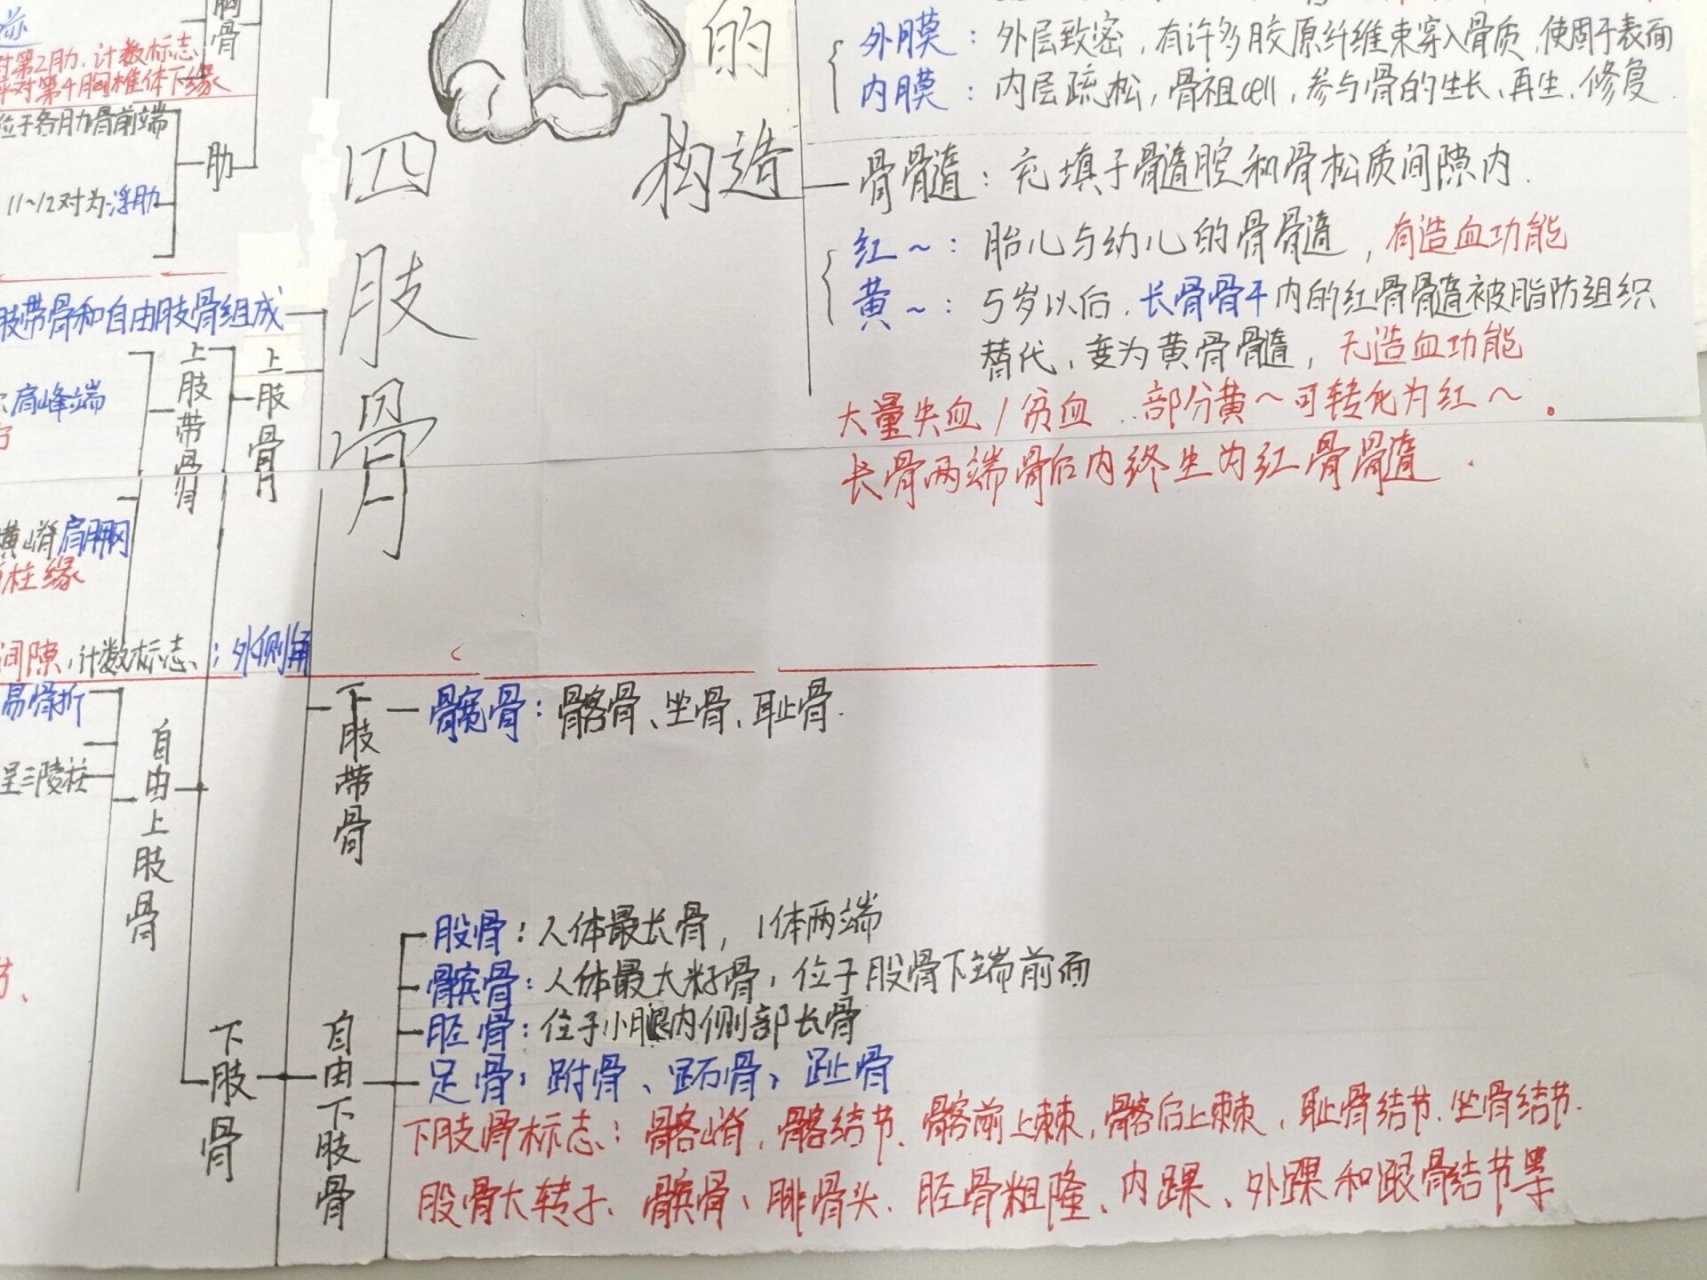 胸骨
对第2肋,计数标志
平对第4胸椎体下缘
位于各肋骨前端
肋
11~12对为浮肋
肢带骨和自由肢骨组成
上肢骨
上肢带骨
肩峰端
横嵴肩胛冈
柱缘
间隙,计数标志、:外侧角
易骨折
呈三陵柱
自由上肢骨
下肢骨
四肢骨
的
构造
外膜:外层致密,有许多胶原纤维束穿入骨质,使固于表面
内膜:内层疏松,骨祖cell,参与骨的生长、再生、修复.
骨髓:充填于骨髓腔和骨松质间隙内.
红~:胎儿与幼儿的骨髓,有造血功能
黄~:5岁以后,长骨骨干内的红骨髓被脂防组织
替代,变为黄骨髓,无造血功能
大量失血/贫血..部分黄~可转化为红~。
长骨两端骨后内终生为红骨髓.
下肢带骨
髋骨:髂骨、坐骨、耻骨.
自由下肢骨
股骨:人体最长骨,1体两端
髌骨:人体最大籽骨,位于股骨下端前面
胫骨:位于小腿内侧部长骨
足骨:跗骨、跖骨、趾骨
下肢骨标志:髂嵴,髂结节、髂前上棘,髂后上棘,耻骨结节、坐骨结节.
股骨大转子、髌骨、腓骨头、胫骨粗隆、内踝、外踝和跟骨结节等